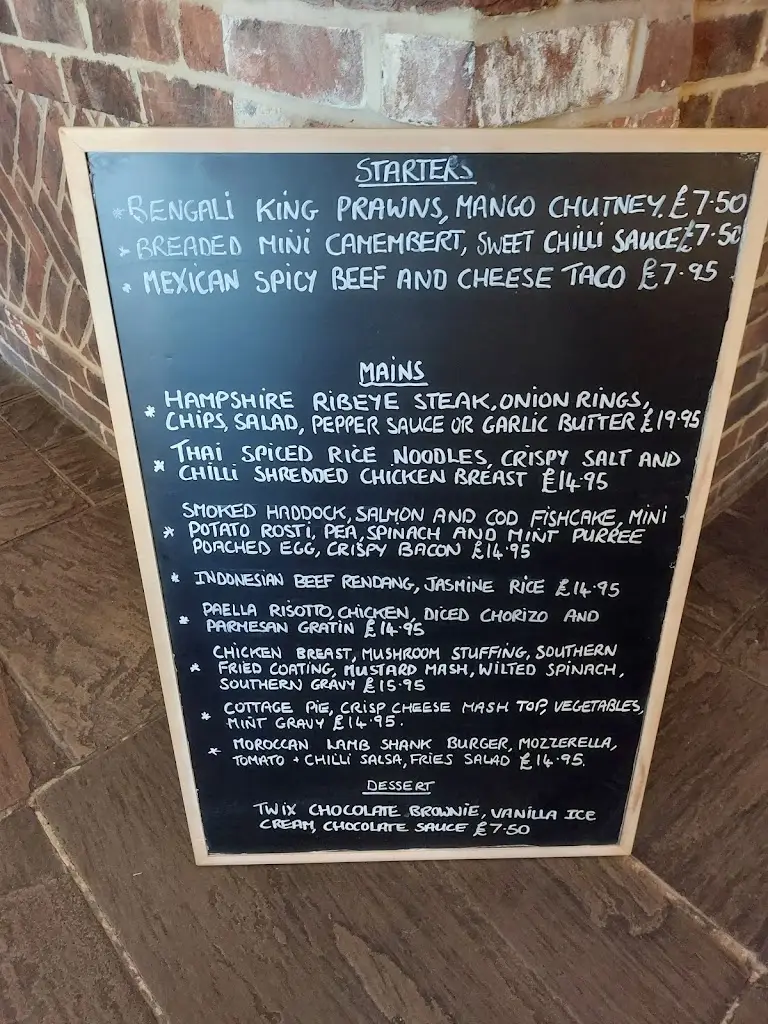 STARTERS
* BENGALI KING PRAWNS, MANGO CHUTNEY. £7.50
* BREADED MINI CAMEMBERT, SWEET CHILLI SAUCE £7.50
* MEXICAN SPICY BEEF AND CHEESE TACO £7.95
MAINS
* HAMPSHIRE RIBEYE STEAK, ONION RINGS,
CHIPS, SALAD, PEPPER SAUCE OR GARLIC BUTTER £19.95
* THAI SPICED RICE NOODLES, CRISPY SALT AND
CHILLI SHREDDED CHICKEN BREAST £14.95
SMOKED HADDOCK, SALMON AND COD FISHCAKE, MINI
* POTATO ROSTI, PEA, SPINACH AND MINT PURREE
POACHED EGG, CRISPY BACON £14.95
* INDONESIAN BEEF RENDANG, JASMINE RICE £14.95
* PAELLA RISOTTO, CHICKEN, DICED CHORIZO AND
PARMESAN GRATIN £14.95
CHICKEN BREAST, MUSHROOM STUFFING, SOUTHERN
* FRIED COATING, MUSTARD MASH, WILTED SPINACH,
SOUTHERN GRAVY £15.95
* COTTAGE PIE, CRISP CHEESE MASH TOP, VEGETABLES,
MINT GRAVY £14.95.
* MOROCCAN LAMB SHANK BURGER, MOZZERELLA,
TOMATO + CHILLI SALSA, FRIES SALAD £14.95.
DESSERT
TWIX CHOCOLATE BROWNIE, VANILLA ICE
CREAM, CHOCOLATE SAUCE £7.50